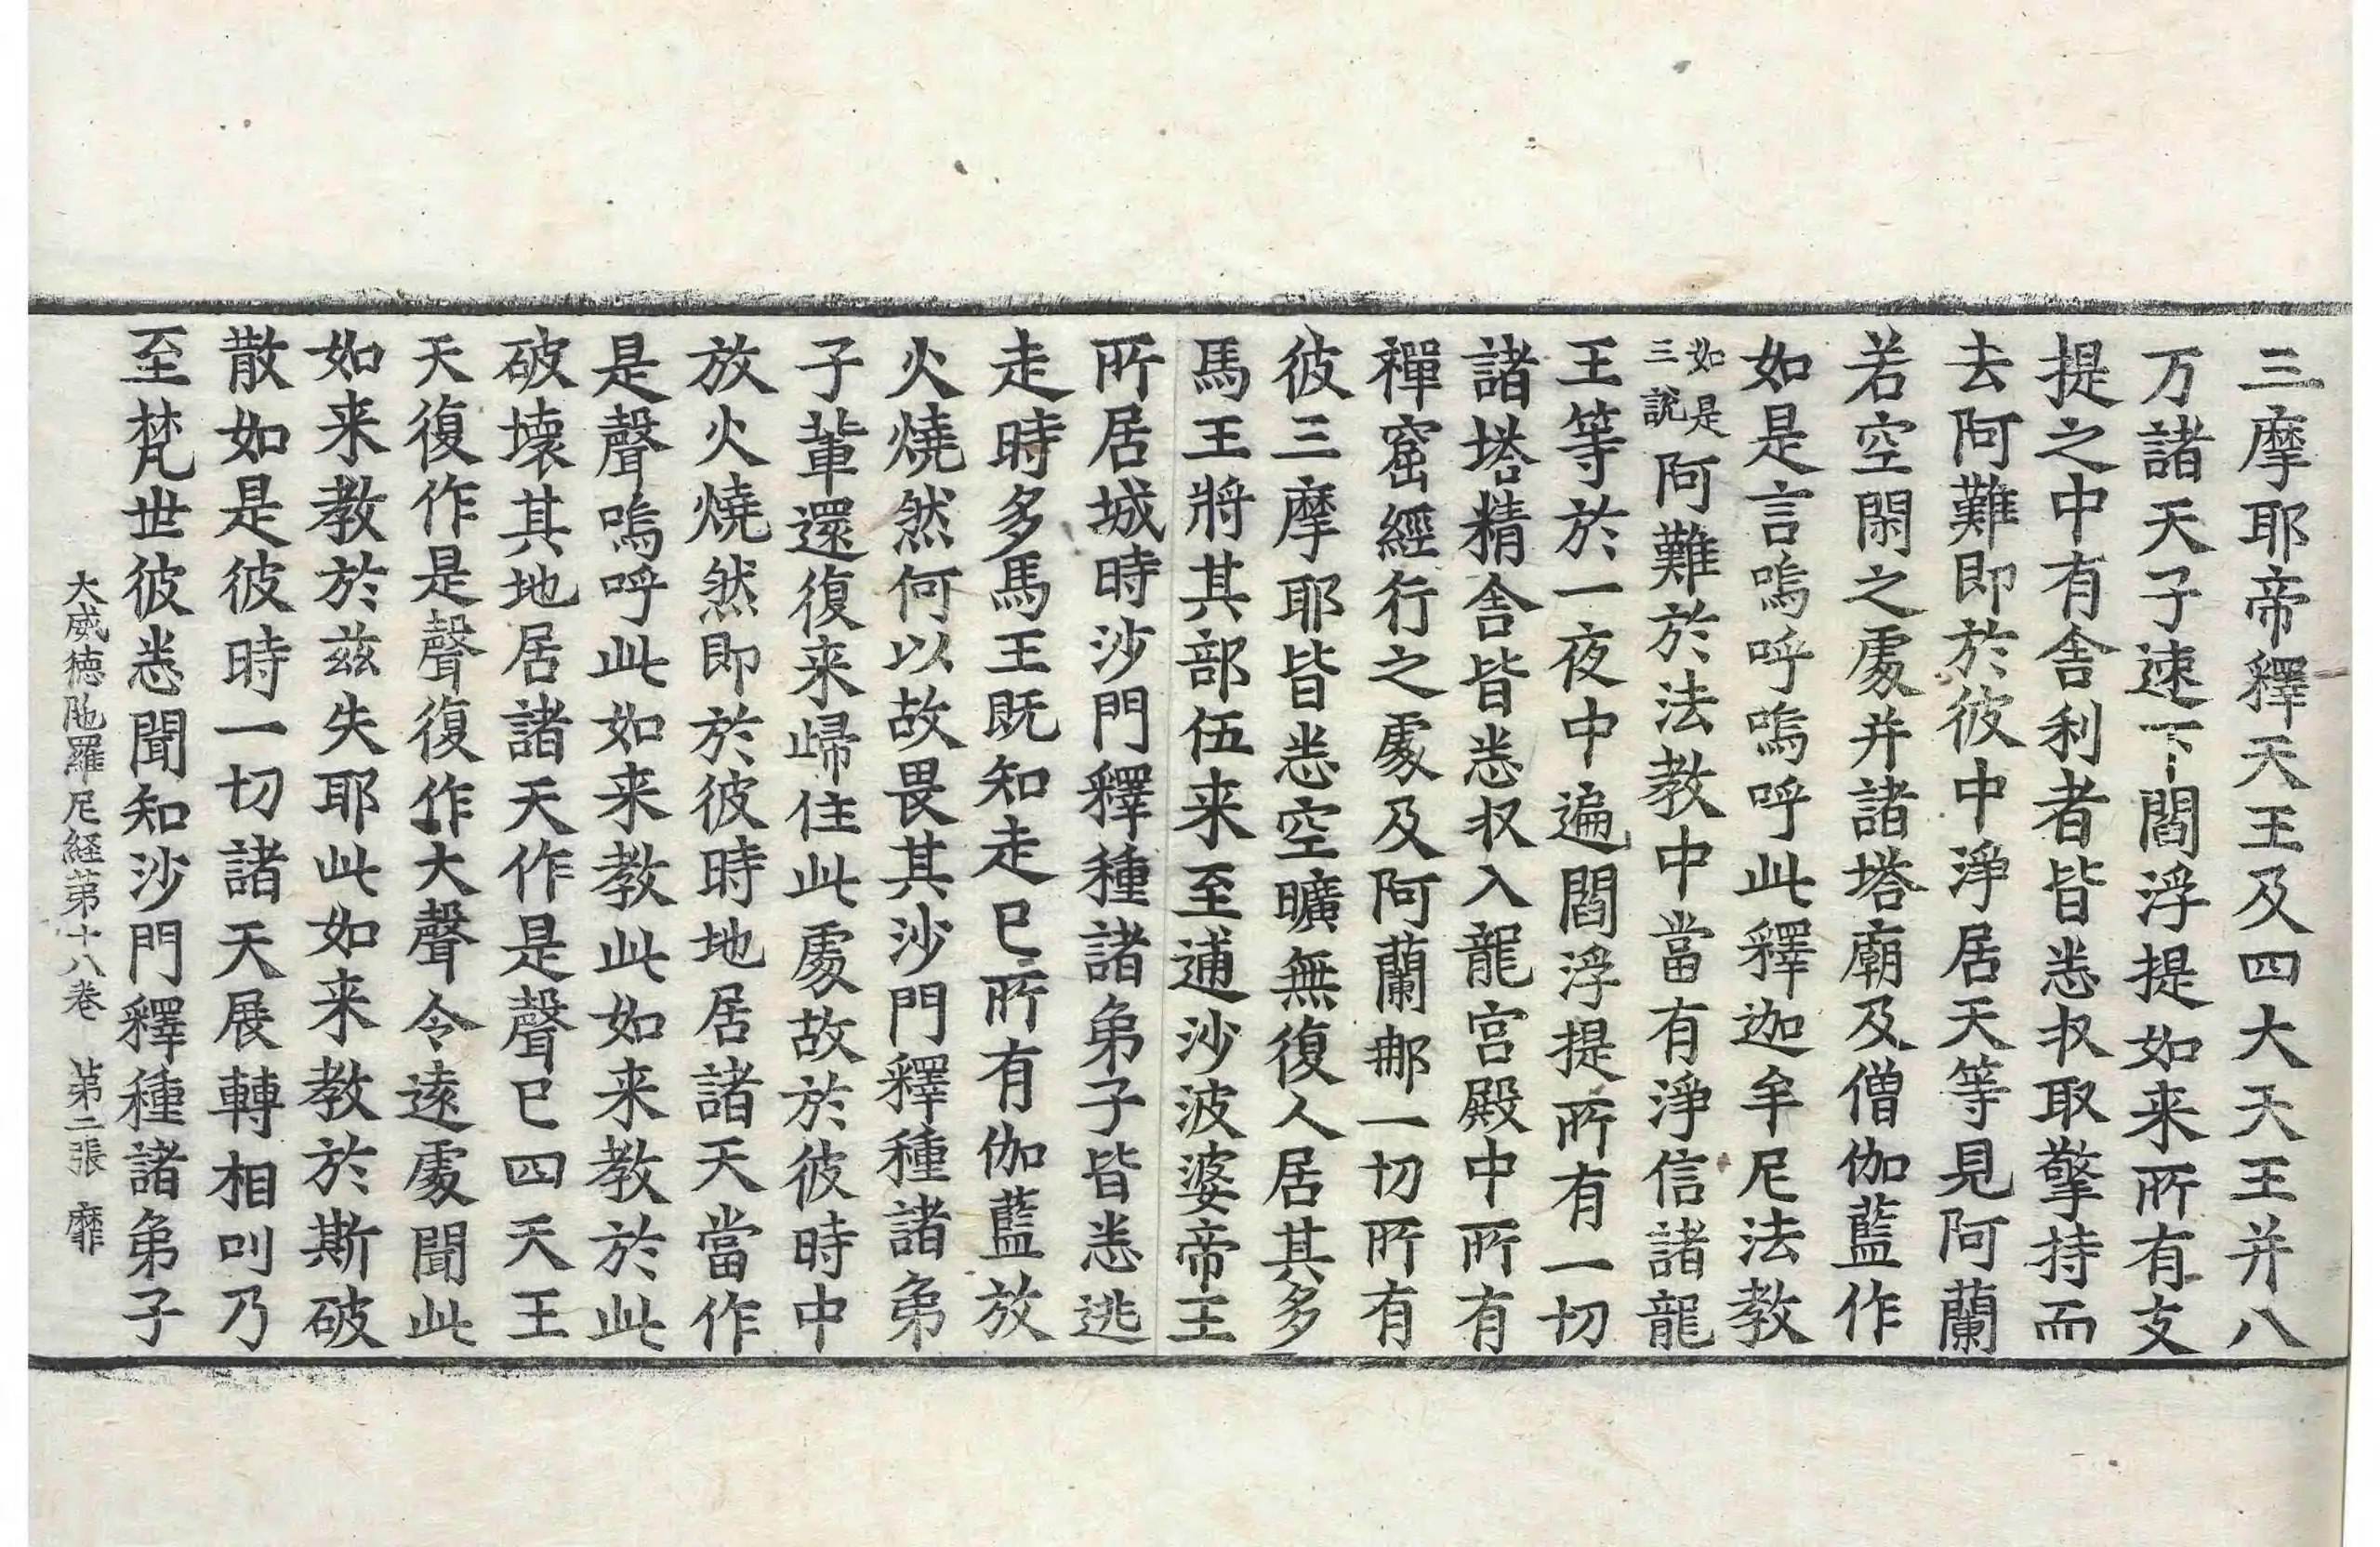 三摩耶帝釋天王及四大天王并八
万諸天子速下閻浮提如来所有支
提之中有舎利者皆悉收取擎持而
去阿難即於彼中淨居天等見阿蘭
若空閑之處并諸塔廟及僧伽藍作
如是言嗚呼嗚呼此釋迦牟尼法教
如是三說阿難於法教中當有淨信諸龍
王等於一夜中遍閻浮提所有一切
諸塔精舎皆悉收入龍宮殿中所有
禪窟經行之處及阿蘭那一切所有
彼三摩耶皆悉空曠無復人居其多
馬王將其部伍来至逋沙波婆帝王
所居城時沙門釋種諸弟子皆悉逃
走時多馬王既知走已所有伽藍放
火燒然何以故畏其沙門釋種諸弟
子輩還復来歸住此處故於彼時中
放火燒然即於彼時地居諸天當作
是聲嗚呼此如来教此如来教於此
破壊其地居諸天作是聲已四天王
天復作是聲復作大聲令遠處聞此
如来教於兹失耶此如来教於斯破
散如是彼時一切諸天展轉相叫乃
至梵世彼悉聞知沙門釋種諸弟子
大威徳陁羅尼経苐十八卷　苐二張　靡